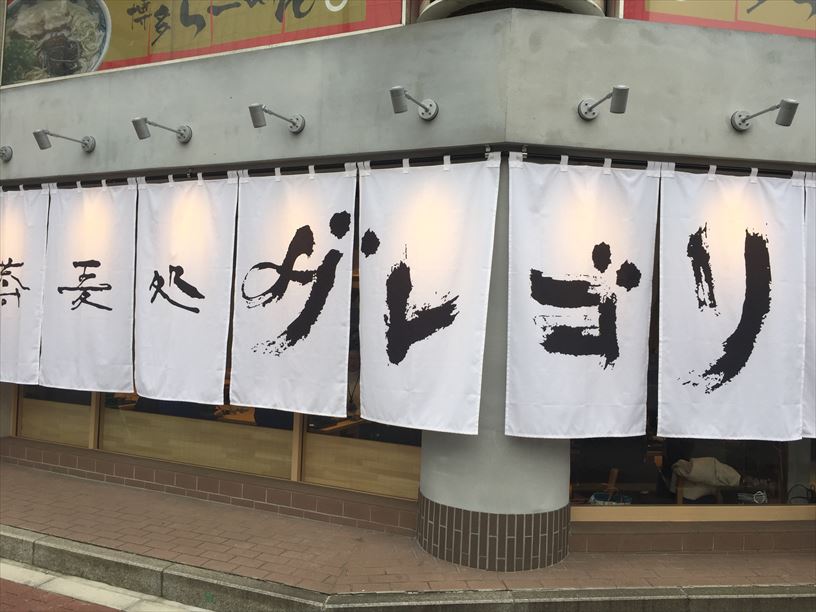 博多らーめん
蕎麦処 ダレゴリ